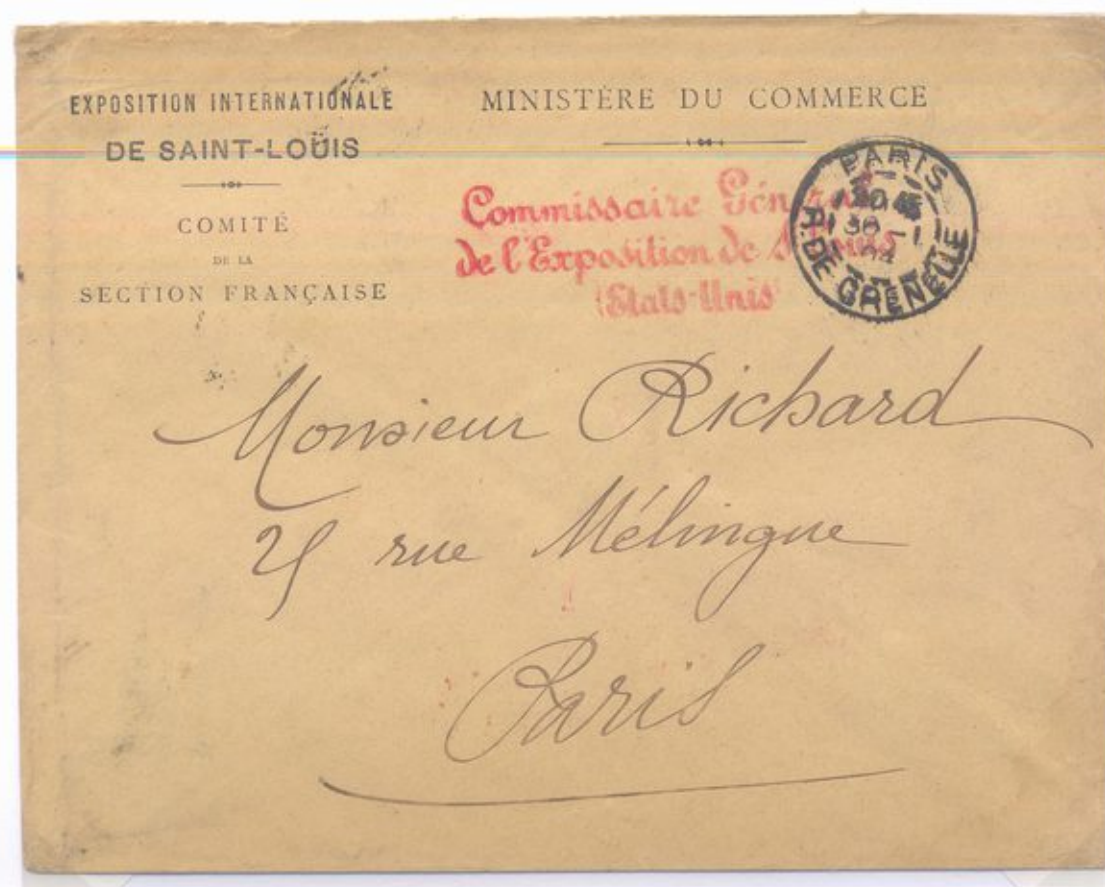 EXPOSITION INTERNATIONALE
DE SAINT-LOUIS
COMITÉ
DE LA
SECTION FRANÇAISE
MINISTÈRE DU COMMERCE
Commissaire Général
de l'Exposition de St Louis
(Etats-Unis
PARIS
30 -1
04
R. DE GRENELLE
Monsieur Richard
25 rue Mélingue
Paris